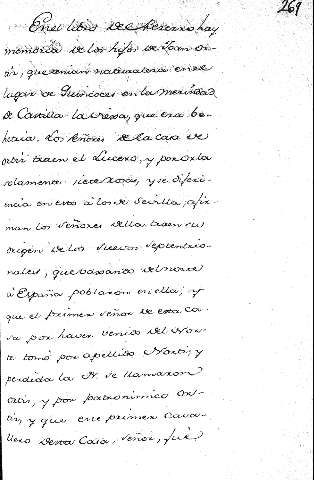 269
En el libro del Becerro hay
memoria de los hijos de Joan Or-
tiz, que tenian naturaleza en el
lugar de Quincoces en la merindad
de Castilla la vieja, que era be-
hetria. Los Señores de la casa de
ortiz traen el Lucero, y por orla
solamente siete rosas, y se diferen-
cia en esto á los de Sevilla; afir-
man los Señores della traen su
origen de los Suevos Septentrio-
nales, que vaxando del norte
á España poblaron en ella; y
que el primer Señor de esta ca-
sa por haver venido del Nor-
te tomó por apellido Nortis; y
perdida la N. se llamaron
ortiz, y por patronimico Or-
tiz, y que este primer Cava-
llero desta Casa, Señor, fué